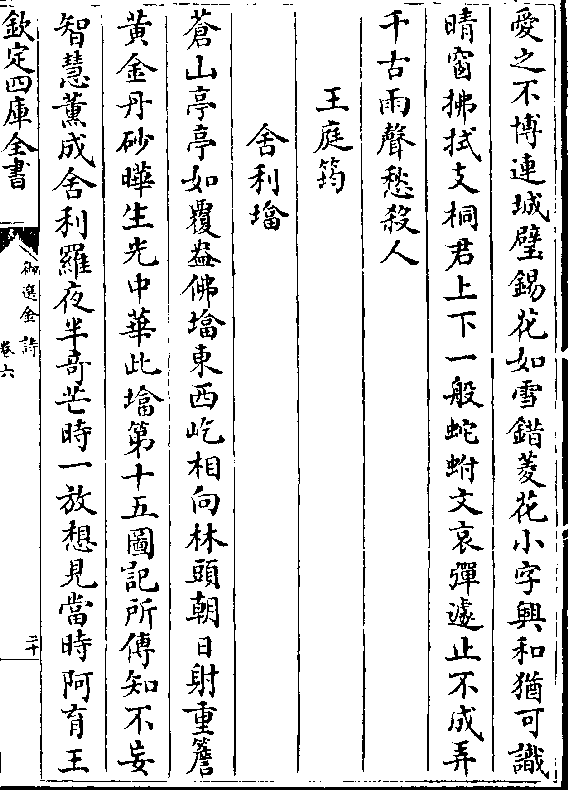 愛之不博連城璧錫花如雪錯菱花小字興和猶可識
晴窗拂拭支桐君上下一般蛇蚹文哀彈遽止不成弄
千古雨聲愁殺人
王庭筠
舍利㙮
蒼山亭亭如覆盎佛㙮東西屹相向林頭朝日射重簷
黄金丹砂曄生光中華此㙮第十五圖記所傳知不妄
智慧薰成舍利羅夜半竒芒時一放想見當時阿育王
欽定四庫全書
御選金詩
卷六
二十